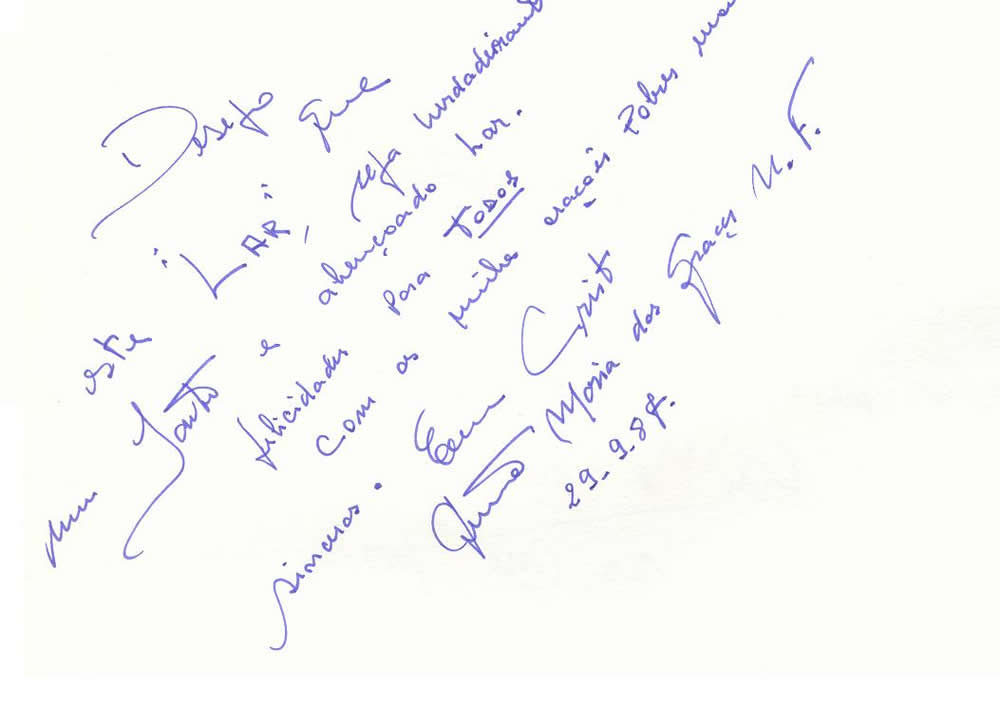 Desejo que
este "LAR", seja verdadeirament
num Santo e abençoado Lar.
felicidades para todos
com as minha orações Pobres mas
sinceras. Em Crist
Maria das Graças N. F.
29.9.87.